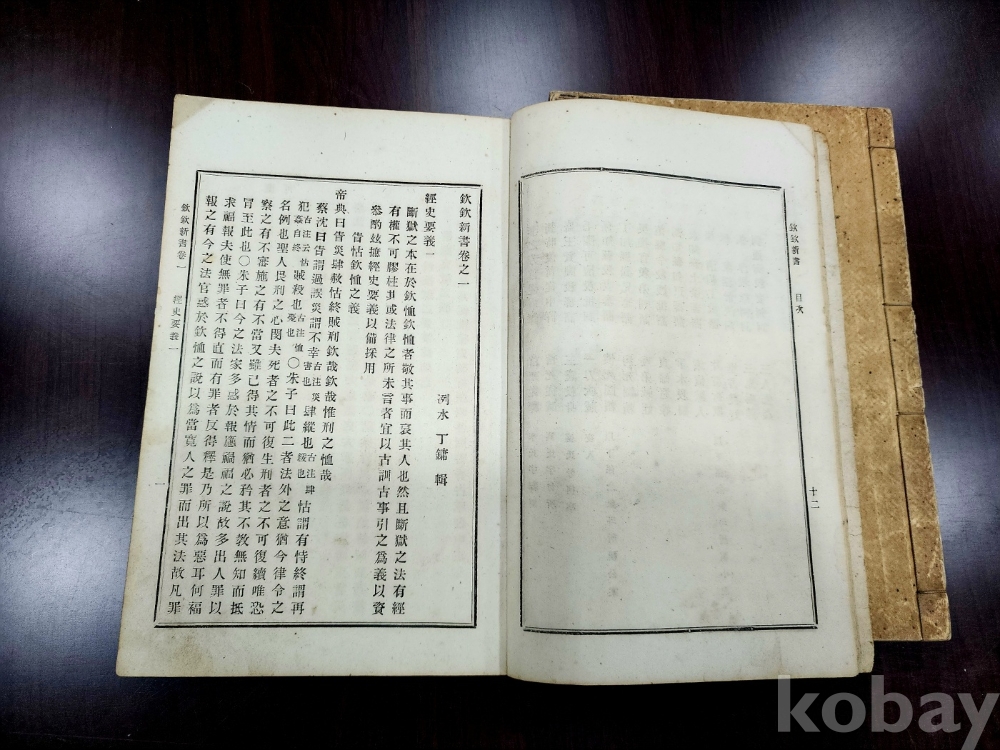 欽欽新書
目次
十二
欽欽新書卷之一
洌水 丁鏞 輯
經史要義一
斷獄之本在於欽恤欽恤者敬其事而哀其人也然且斷獄之法有經
有權不可膠柱其或法律之所未言者宜以古訓古事引之爲義以資
參酌玆摭經史要義以備採用
眚怙欽恤之義
帝典曰眚災肆赦怙終賊刑欽哉欽哉惟刑之恤哉
蔡沈曰眚謂過誤災謂不幸古注災害也肆縱也古注肆緩也怙謂有恃終謂再
犯古注云怙姦自終賊殺也古注恤憂也〇朱子曰此二者法外之意猶今律令之
名例也聖人畏刑之心閔夫死者之不可復生刑者之不可復續唯恐
察之有不審施之有不當又雖已得其情而猶必矜其不敎無知而抵
冐至此也〇朱子曰今之法家多惑於報應禍福之說故多出人罪以
求福報夫使無罪者不得直而有罪者反得釋是乃所以爲惡耳何福
報之有今之法官惑於欽恤之說以爲當寬人之罪而出其法故凡罪
欽欽新書卷一
經史要義一
一
kobay